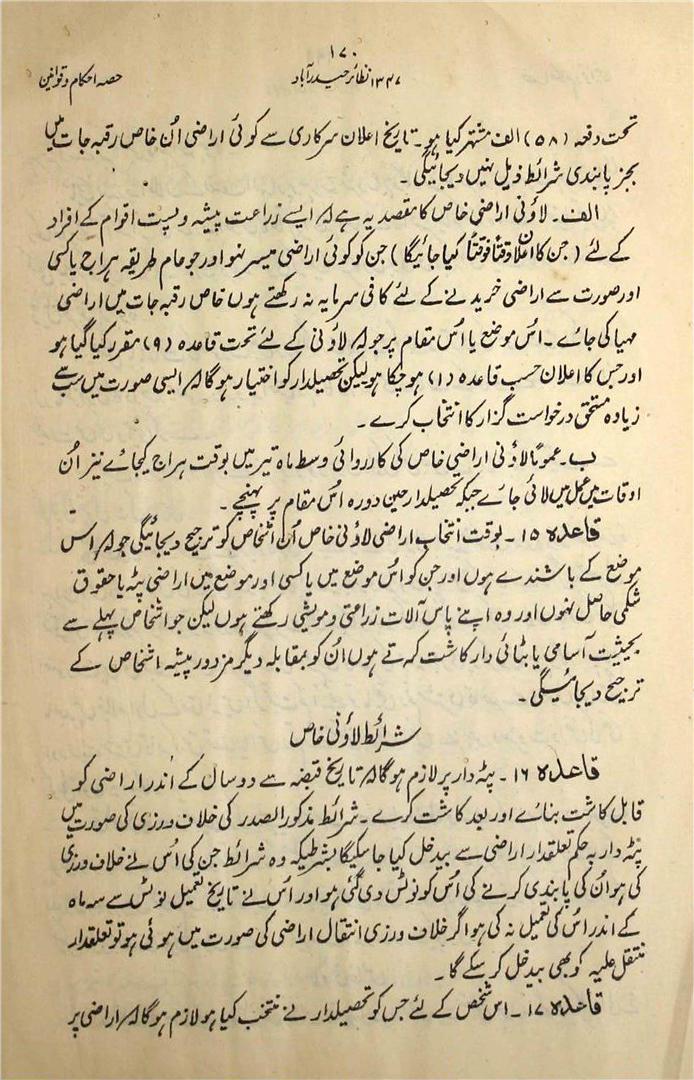 ۱۷۰
۱۳۴۷ نظائر حیدرآباد
حصہ احکام و قوانین
تحت دفعہ (۵۸) الف مشتہر کیا ہو۔ تاریخ اعلان سرکاری سے کوئی اراضی اُن خاص رقبہ جات میں
بجز پابندی شرائط ذیل نہیں دیجائیگی۔
الف۔ لاؤنی اراضی خاص کا مقصد یہ ہے کہ ایسے زراعت پیشہ و پست اقوام کے افراد
کے لئے (جن کا اعلان وقتاً فوقتاً کیا جائیگا) جن کو کوئی اراضی میسر نہو اور جو عام طریقہ ہراج یا کسی
اور صورت سے اراضی خریدنے کے لئے کافی سرمایہ نہ رکھتے ہوں خاص رقبہ جات میں اراضی
مہیا کی جائے۔ اُس موضع یا اُس مقام پر جو کہ لاؤنی کے لئے تحت قاعدہ (۹) مقرر کیا گیا ہو
اور جس کا اعلان حسب قاعدہ (۱) ہو چکا ہو لیکن تحصیلدار کو اختیار ہو گا کہ ایسی صورت میں سب سے
زیادہ مستحق درخواست گزار کا انتخاب کرے۔
ب۔ عموماً لاؤنی اراضی خاص کی کارروائی وسط ماہ تیر میں بوقت ہراج کیجائے نیز اُن
اوقات میں عمل میں لائی جائے جبکہ تحصیلدار حین دورہ اُس مقام پر پہنچے۔
قاعدہ ۱۵۔ بوقت انتخاب اراضی لاؤنی خاص اُن اشخاص کو ترجیح دیجائیگی جو کہ اس
موضع کے باشندے ہوں اور جن کو اُس موضع میں یا کسی اور موضع میں اراضی پٹہ یا حقوق
شکمی حاصل نہوں اور وہ اپنے پاس آلات زراعتی و مویشی رکھتے ہوں لیکن جو اشخاص پہلے سے
بحیثیت آسامی یا بٹائی دار کاشت کرتے ہوں اُن کو بمقابلہ دیگر مزدور پیشہ اشخاص کے
ترجیح دیجائیگی۔
شرائط لاؤنی خاص
قاعدہ ۱۶۔ پٹہ دار پر لازم ہو گا کہ تاریخ قبضہ سے دو سال کے اندر اراضی کو
قابل کاشت بنائے اور بعد کاشت کرے۔ شرائط مذکور الصدر کی خلاف ورزی کی صورت میں
پٹہ دار بہ حکم تعلقدار اراضی سے بیدخل کیا جا سکیگا بشرطیکہ وہ شرائط جن کی اُس نے خلاف ورزی
کی ہو اُن کی پابندی کرنے کی اُس کو نوٹس دی گئی ہو اور اُس نے تاریخ تعمیل نوٹس سے سہ ماہ
کے اندر اُس کی تعمیل نہ کی ہو اگر خلاف ورزی انتقال اراضی کی صورت میں ہوئی ہو تو تعلقدار
منتقل علیہ کو بھی بیدخل کر سکے گا۔
قاعدہ ۱۷۔ اس شخص کے لئے جس کو تحصیلدار نے منتخب کیا ہو لازم ہو گا کہ اراضی پر